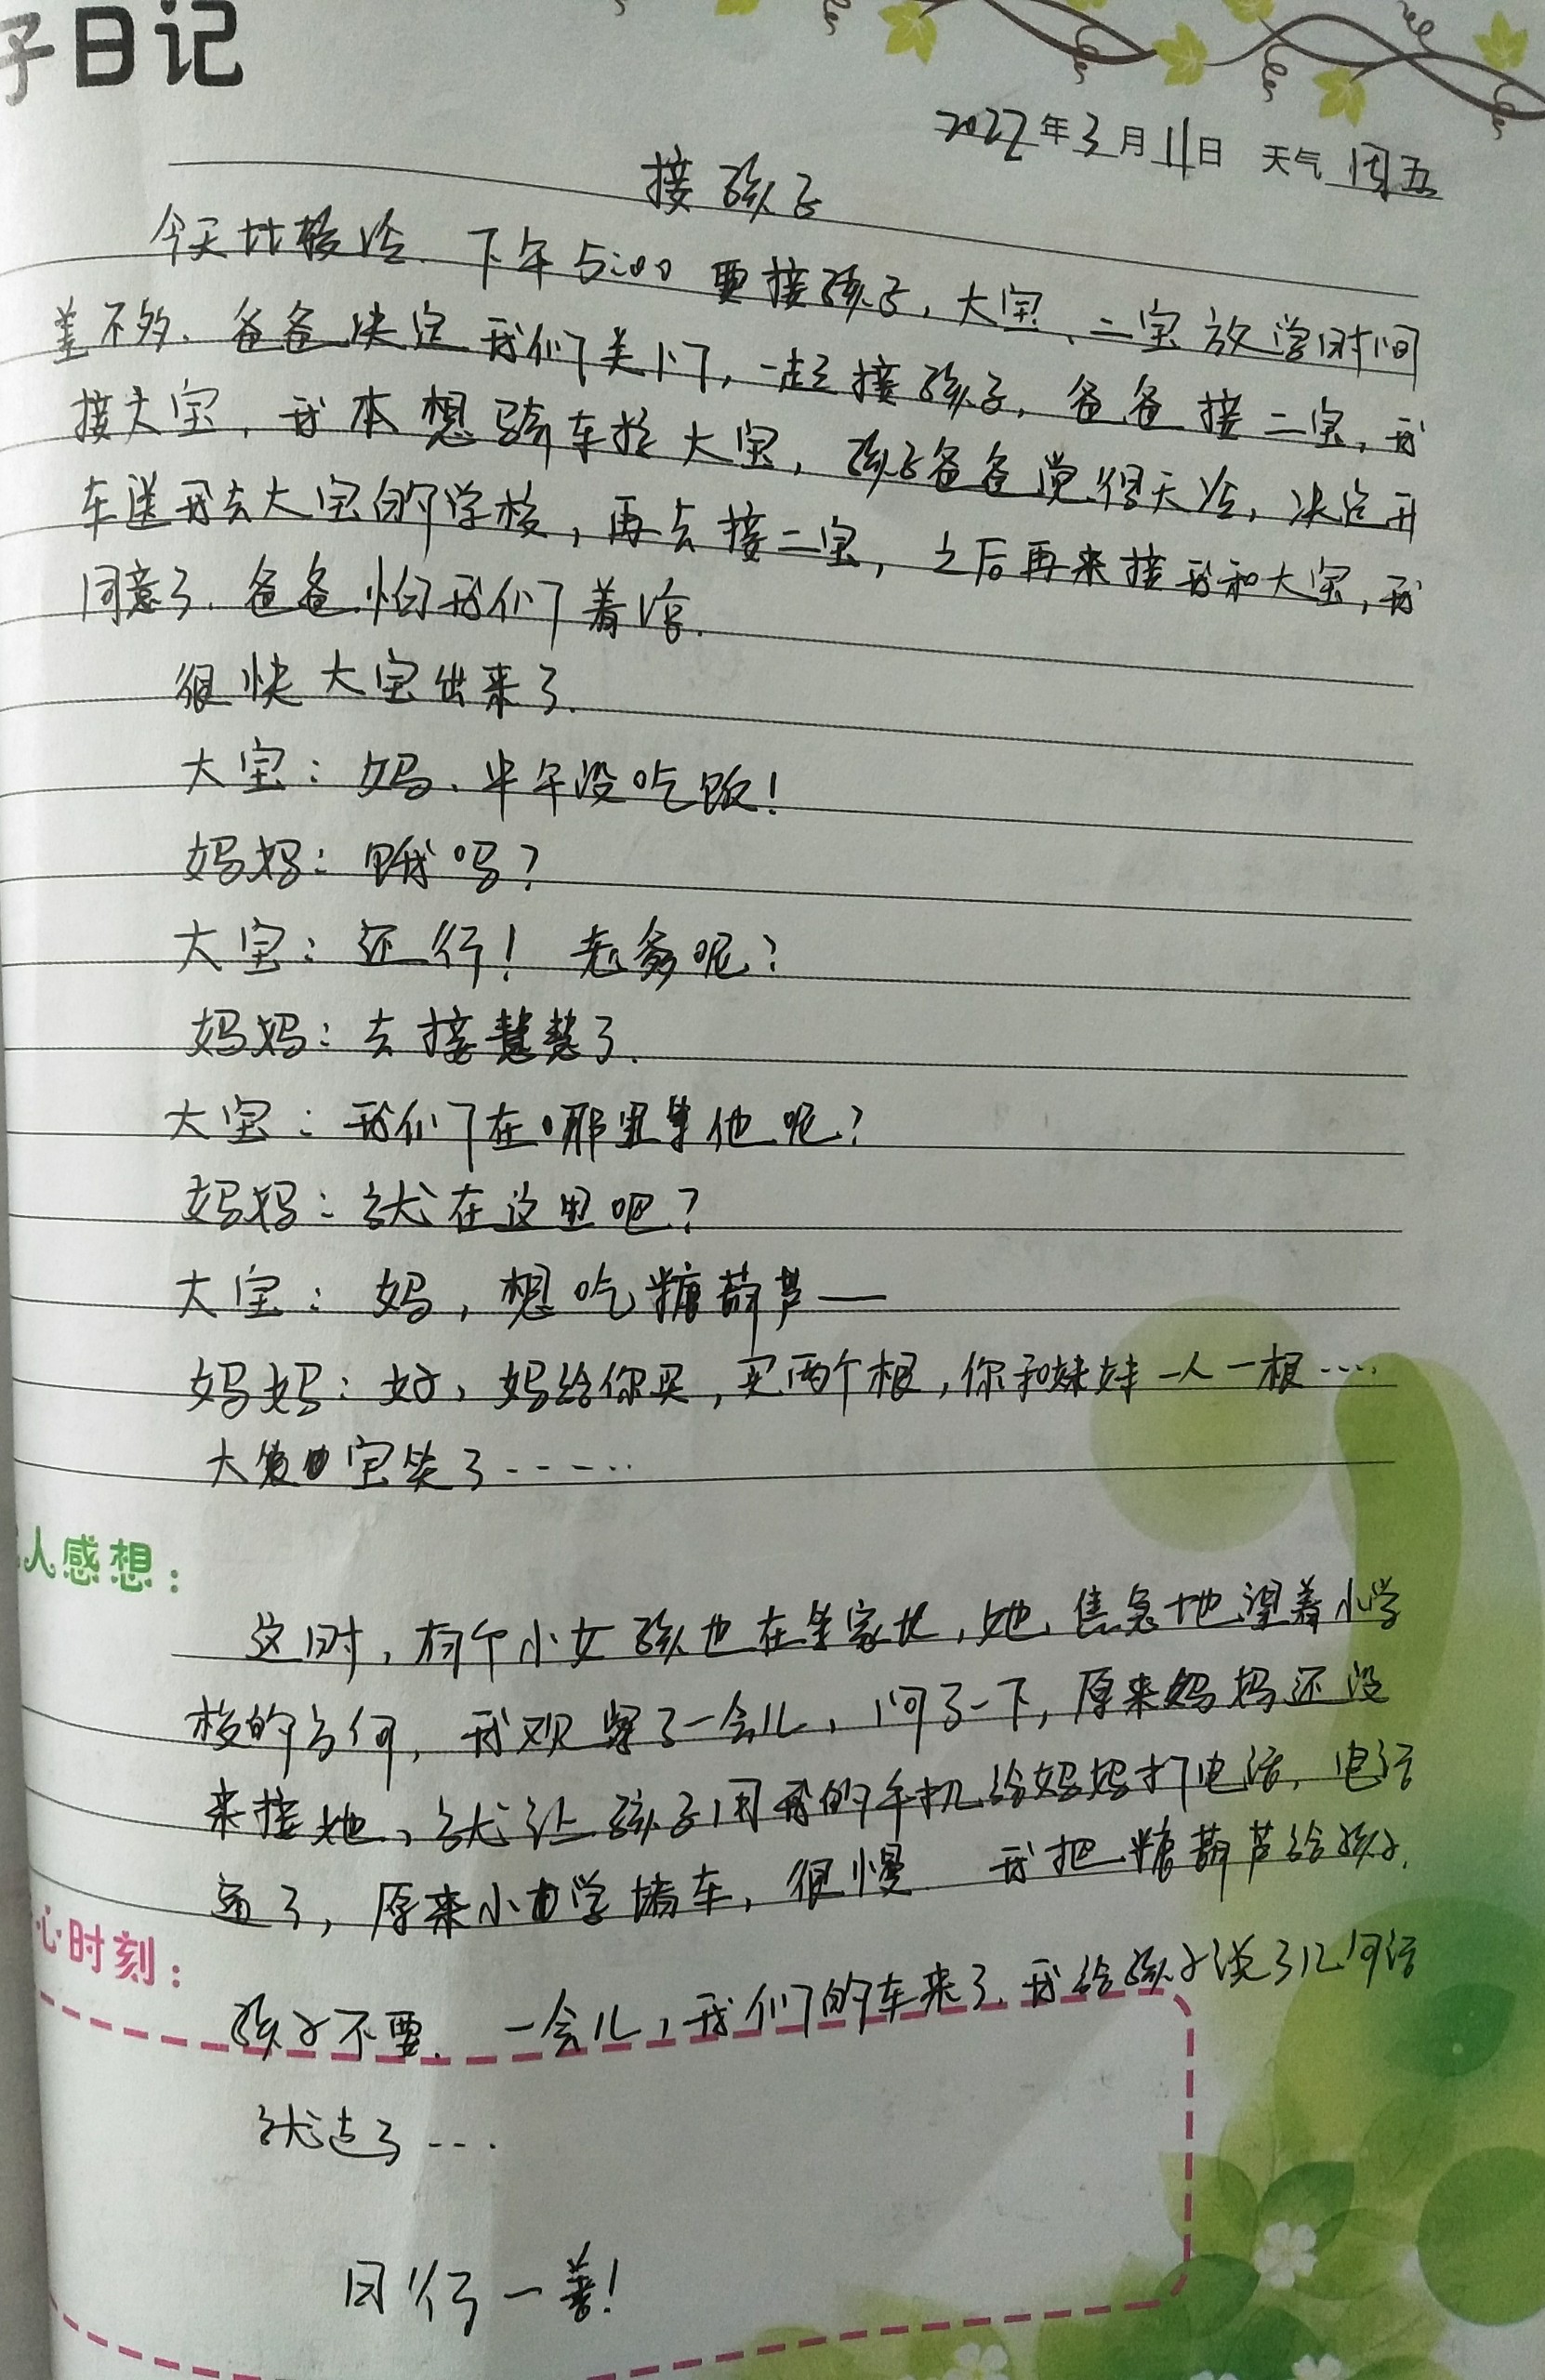 子日记
2022年3月11日 天气 周五
接孩子
今天比较冷.下午5:00要接孩子,大宝、二宝放学时间
差不多.爸爸决定我们关门,一起接孩子,爸爸接二宝,我
接大宝,我本想骑车接大宝,孩子爸爸觉得天冷,决定开
车送我去大宝的学校,再去接二宝,之后再来接我和大宝,我
同意了.爸爸怕我们着凉.
很快大宝出来了.
大宝:妈、中午没吃饭!
妈妈:饿吗?
大宝:还行!老爸呢?
妈妈:去接慧慧了.
大宝:我们在哪里等他呢?
妈妈:就在这里吧?
大宝:妈,想吃糖葫芦—
妈妈:好,妈给你买,买两个根,你和妹妹一人一根……
大宝笑了……
人感想:
这时,有个小女孩也在等家长,她焦急地望着小学
校的方向,我观察了一会儿,问了一下,原来妈妈还没
来接她,就让孩子用我的手机给妈妈打电话,电话
通了,原来小学堵车,很慢 我把糖葫芦给孩子,
心时刻:
孩子不要.一会儿,我们的车来了.我给孩子说了几句话
就走了…
日行一善!